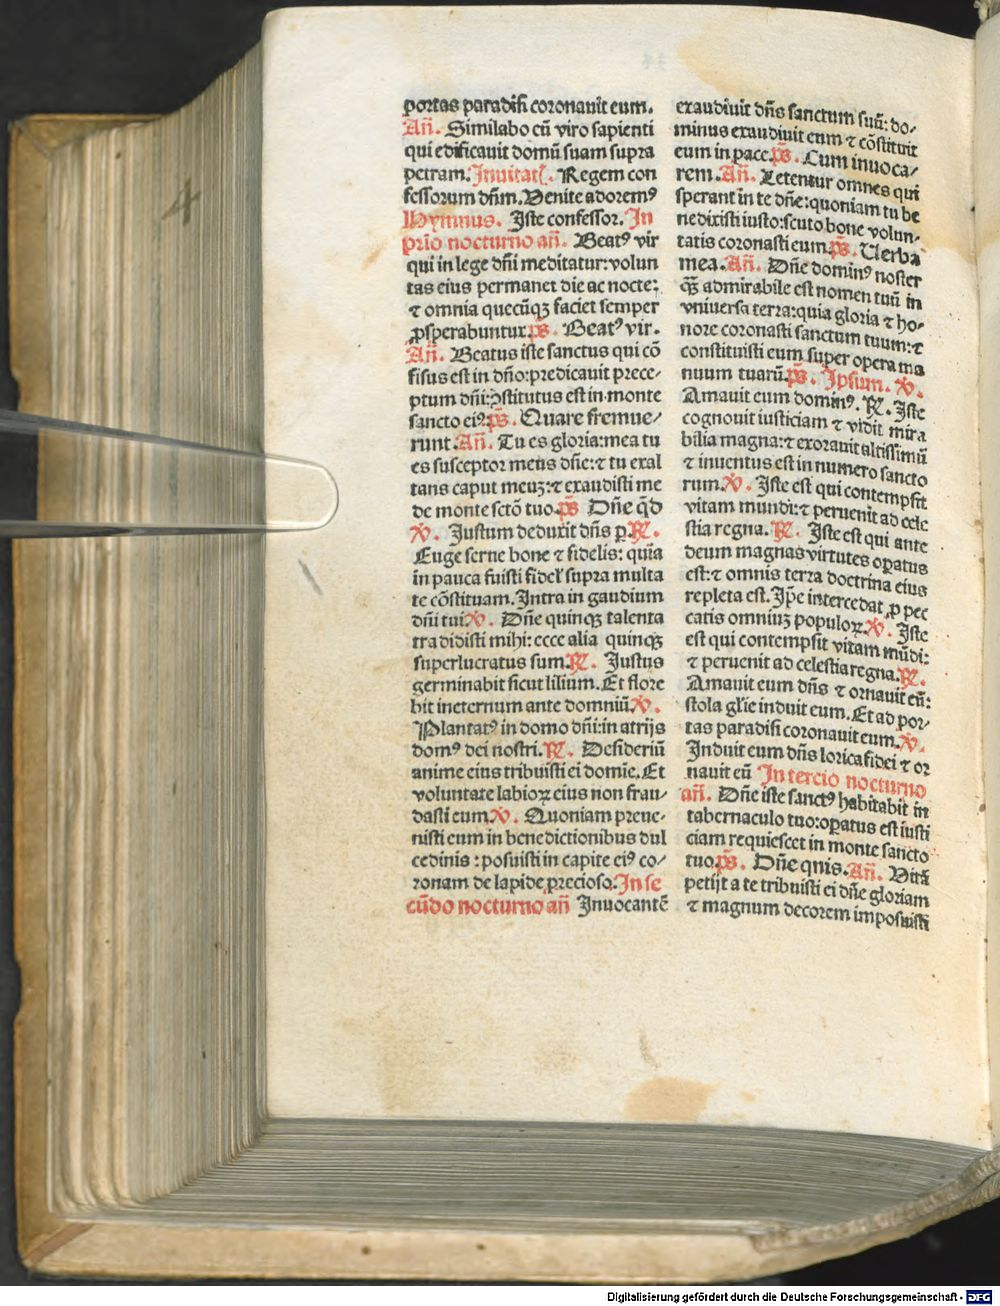 portas paradisi coronauit eum.
Añ. Similabo cũ viro sapienti
qui edificauit domũ suam supra
petram. Inuitat. Regem con
fessorum dñm. Uenite adoremꝰ
Hymnus. Iste confessor. In
prio nocturno añ. Beatꝰ vir
qui in lege dñi meditatur: volun
tas eius permanet die ac nocte:
⁊ omnia quecũqꝫ faciet semper
ꝓsperabuntur. p̃s. Beatꝰ vir.
Añ. Beatus iste sanctus qui cõ
fisus est in dño: predicauit prece⸗
ptum dñi: ꝯstitutus est in monte
sancto eiꝰ. p̃s. Quare fremue⸗
runt. Añ. Tu es gloria: mea tu
es susceptor meus dñe: ⁊ tu exal
tans caput meuꝫ: ⁊ exaudisti me
de monte sctõ tuo. p̃s Dñe q̃d
℣. Justum deduxit dñs p. ℞.
Euge serue bone ⁊ fidelis: quia
in pauca fuisti fidel supra multa
te cõstituam. Intra in gaudium
dñi tui ℣. Dñe quinqꝫ talenta
tradidisti mihi: ecce alia quinqꝫ
superlucratus sum. ℞. Justus
germinabit sicut lilium. Et flore
bit ineternum ante domniũ. ℣.
Plantatꝰ in domo dñi: in atrijs
domꝰ dei nostri. ℞. Desideriũ
anime eius tribuisti ei domie. Et
voluntate labioꝝ eius non frau⸗
dasti eum. ℣. Quoniam preue⸗
nisti eum in benedictionibus dul
cedinis: posuisti in capite eiꝰ co⸗
ronam de lapide precioso. In se
cũdo nocturno añ Inuocantẽ
exaudiuit dñs sanctum suũ: do⸗
minus exaudiuit eum ⁊ cõstituit
eum in pace. p̃s. Cum inuoca⸗
rem. Añ. Letentur omnes qui
sperant in te dñe: quoniam tu be
nedixisti iusto: scuto bone volun⸗
tatis coronasti eum. p̃s. Uerba
mea. Añ. Dñe dominꝰ noster
q̃ꝫ admirabile est nomen tuũ in
vniuersa terra: quia gloria ⁊ ho⸗
nore coronasti sanctum tuum: ⁊
constituisti eum super opera ma
nuum tuarũ. p̃s. Ipsum. ℣.
Amauit eum dominꝰ. ℞. Iste
cognouit iusticiam ⁊ vidit mira
bilia magna: ⁊ exorauit altissimũ
⁊ inuentus est in numero sancto
rum. ℣. Iste est qui contempsit
vitam mundi: ⁊ peruenit ad cele
stia regna. ℞. Iste est qui ante
deum magnas virtutes opatus
est: ⁊ omnis terra doctrina eius
repleta est. Ip̃e intercedat ꝓ pec
catis omniuꝫ populoꝝ. ℣. Iste
est qui contempsit vitam mũdi:
⁊ peruenit ad celestia regna. ℞.
Amauit eum dñs ⁊ ornauit eũ:
stola gl̃ie induit eum. Et ad por⸗
tas paradisi coronauit eum. ℣.
Induit eum dñs lorica fidei ⁊ or
nauit eũ In tercio nocturno
añ. Dñe iste sanctꝰ habitabit in
tabernaculo tuo: opatus est iusti
ciam requiescet in monte sancto
tuo. p̃s. Dñe quis. Añ. Vitã
petijt a te tribuisti ei dñe gloriam
⁊ magnum decorem imposuisti
4
Digitalisierung gefördert durch die Deutsche Forschungsgemeinschaft - DFG